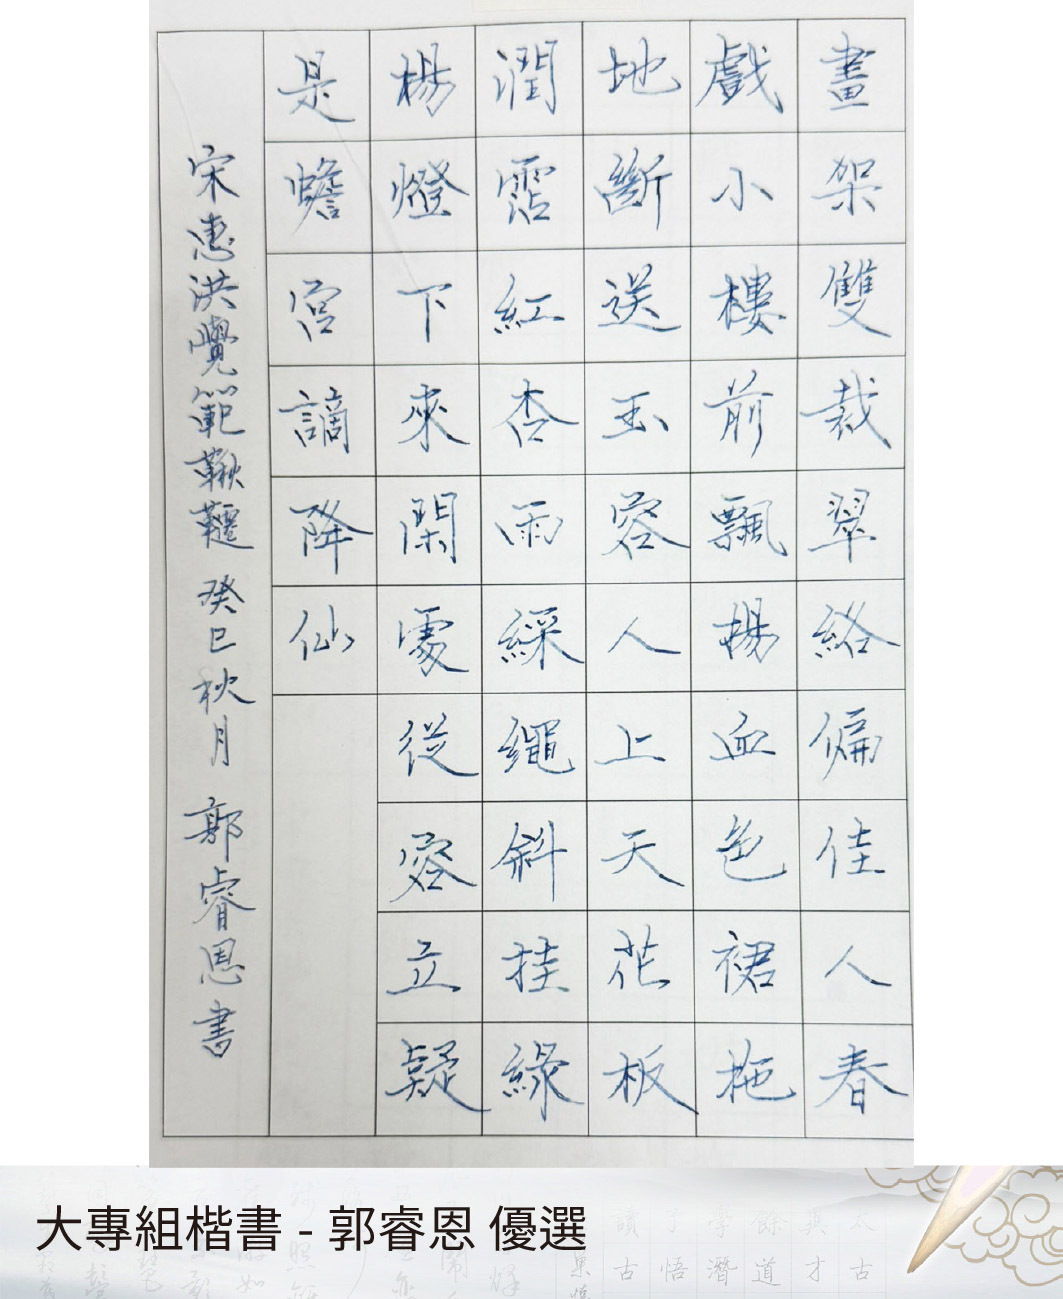 畫架雙裁翠絡偏佳人春
戲小樓前飄揚血色裙拖
地斷送玉容人上天花板
潤霑紅杏雨綵繩斜挂綠
楊燈下來閑處從容立疑
是蟾宮謫降仙
宋惠洪覺範鞦韆 癸巳秋月 郭睿恩書
大專組楷書 - 郭睿恩 優選